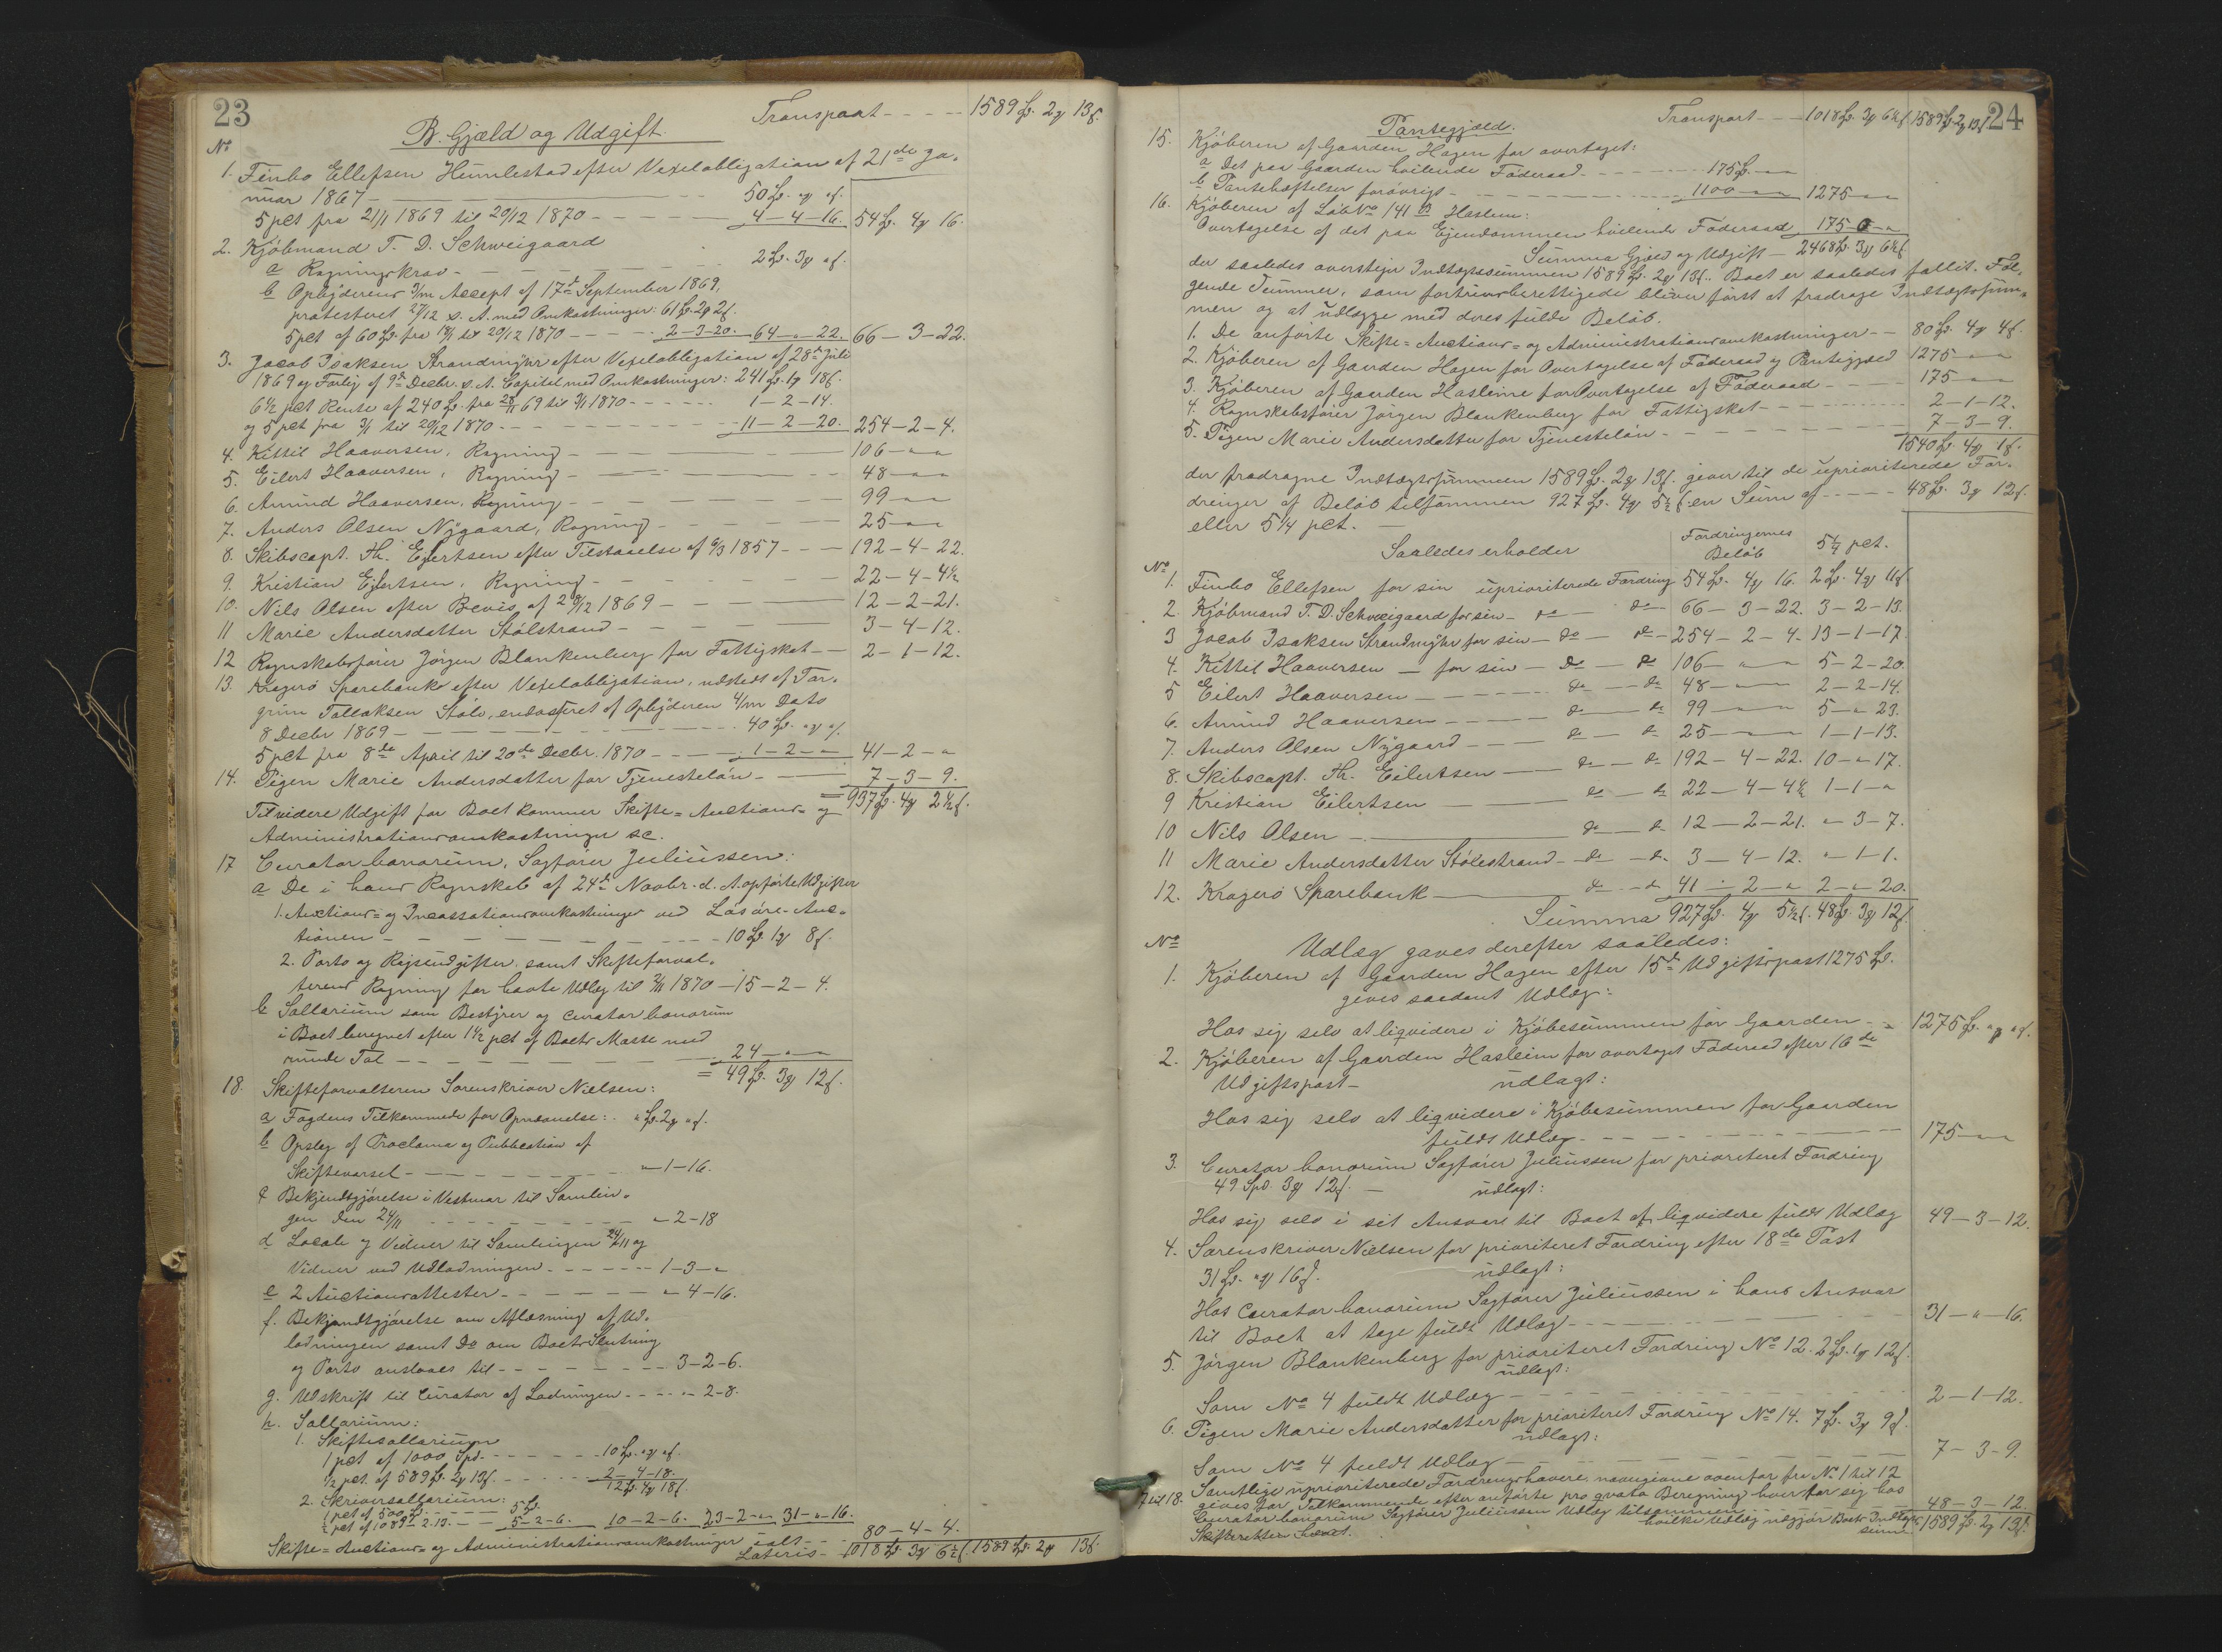 23
Transport - - - - 1589 Sp. 2 ʒ 13 ſ.
B. Gjæld og Udgift.
No
1. Finbo Ellefsen Humlestad efter Vexelobligation af 21de Ja-
nuar 1867 - 50 Sp. " ʒ " ſ.
5 pct fra 21/1 1869 til 20/12 1870 - - - - 4 - 4 - 16. 54 Sp. 4 ʒ 16.
2. Kjöbmand T. D. Schweigaard
a Regningskrav - 2 Sp. 3 ʒ " ſ.
b Opbyderens 3/m Accept af 17de September 1869,
protesteret 27/12 s. A. med Omkostninger: 61 Sp. 2 ʒ 2 ſ.
5 pct af 60 Sp. fra 18/1 til 20/12 1870 - - - - 2 - 3 - 20. 64 - " - 22. 66 - 3 - 22.
3. Jacob Isaksen Strandmyhr efter Vexelobligation af 28de Juli
1869 og Forlig af 9de Decbr. s. A. Capital med Omkostninger: 241 Sp. 1 ʒ 18 ſ.
6 1/2 pct Rente af 240 Sp. fra 28/11 69 til 3/1 1870 - - - - 1 - 2 - 14.
og 5 pct fra 3/1 til 20/12 1870 - - - - 11 - 2 - 20. 254 - 2 - 4.
4. Kittil Haaversen, Regning - 106 - " - "
5. Eilert Haaversen, Regning - 48 - " - "
6. Amund Haaversen, Regning - 99 - " - "
7. Anders Olsen Nygaard, Regning - 25 - " - "
8. Skibscapt. Th. Eilertsen efter Tilstaaelse af 6/3 1857 - - - 192 - 4 - 22.
9. Kristian Eilertsen, Regning - 22 - 4 - 4 1/2
10. Nils Olsen efter Bevis af 28/12 1869 - 12 - 2 - 21.
11 Marie Andersdatter Stölstrand - 3 - 4 - 12.
12 Regnskabsförer Jörgen Blankenberg for Fattigskat - - 2 - 1 - 12.
13. Kragerö Sparebank efter Vexelobligation, udstedt af Tor-
grim Tallaksen Stölo, endosseret af Opbyderen 4/m Dato
8 Decbr 1869 - 40 Sp. " ʒ " ſ.
5 pct fra 8de April til 20de Decbr. 1870 - - - - 1 - 2 - " 41 - 2 - "
14. Pigen Marie Andersdatter for Tjenestelön - 7 - 3 - 9.
= 937 Sp. 4 ʒ 2 1/2 ſ.
Til videre Udgift for Boet kommer Skifte= Auctions= og
Administrationsomkostninger sc.
17 Curator bonorum, Sagförer Juliussen:
a De i hans Regnskab af 24de Novbr. d. A. opförte Udgifter
1. Auctions= og Incassationsomkostninger ved Lösöre-Auc-
tionen - 10 Sp. 1 ʒ 8 ſ.
2. Porto og Rejseudgifter, samt Skifteforval-
terens Regning for havte Udlæg til 2/11 1870 - 15 - 2 - 4.
b Sallarium som Bestyrer og Curator bonorum
i Boet beregnet efter 1 1/2 pct af Boets Masse med
runde Tal - 24 - " - "
= 49 Sp. 3 ʒ 12 ſ.
18. Skifteforvalteren Sorenskriver Nielsen:
a Fogdens Tilkommende for Opnævnelse: " Sp. 2 ʒ " ſ.
b Opslag af Proclama og Publication af
Skiftevarsel - " - 1 - 16.
c Bekjendtgjörelse i Vestmar til Samlin-
gen den 24/11 - " - 2 - 18
d Locale og Vidner til Samlingen 24/11 og
Vidner ved Udlodningen - - - - 1 - 3 - "
e 2 Auctionsattester - " - 4 - 16.
f. Bekjendtgjörelse om Aflæsning af Ud-
lodningen samt Do om Boets Slutning
og Porto anslaaes til - - - - 3 - 2 - 6.
g. Udskrift til Curator af Lodningen - - - - " - 2 - 8.
h. Sallarium:
1. Skiftesallarium
1 pct af 1000 Spd. - 10 Sp. " ʒ " ſ.
1/2 pct. af 589 Sp. 2 ʒ 13 ſ. - 2 - 4 - 18.
12 Sp. 4 ʒ 18 ſ.
2. Skriversallarium:
1 pct af 500 Sp. - 5 Sp.
1/2 pct af 1089 - 2 - 13. - - 5 - 2 - 6. 10 - 2 - 6. 23 - 2 - " 31 - " - 16.
Skifte= Auctions= og Administrationsomkostninger ialt - - 80 - 4 - 4.
Lateris - 1018 Sp. 3 ʒ 6 1/2 ſ. 1589 Sp. 2 ʒ 13 ſ.
24
Transport - - 1018 Sp. 3 ʒ 6 1/2 ſ. 1589 Sp. 2 ʒ 13 ſ.
Pantegjæld.
15. Kjöberen af Gaarden Hagen for overtaget:
a Det paa Gaarden hvilende Föderaad - 175 Sp. " - "
b Pantehæftelser forövrigt - 1100 - " - " 1275 - " - "
16. Kjöberen af Löb No 141 B Haslem:
Overtagelse af det paa Ejendommen hvilende Föderaad 175 - " - "
Summa Gjæld og Udgift - 2468 Sp. 3 ʒ 6 1/2 ſ.
der saaledes overstiger Indtægtssummen 1589 Sp. 2 ʒ 13 ſ. Boet er saaledes fallit. Föl-
gende Summer, som fortrinsberettigede bliver först at fradrage Indtægtssum-
men og at udlægge med deres fulde Belöb.
1. De anförte Skifte= Auctions= og Administrationsomkostninger - - 80 Sp. 4 ʒ 4 ſ.
2. Kjöberen af Gaarden Hagen for Overtagelse af Föderaad og Pantegjæld 1275 - " - "
3. Kjöberen af Gaarden Hasleime for Overtagelse af Föderaad - 175 - " - "
4. Regnskabsförer Jörgen Blankenberg for Fattigskat - 2 - 1 - 12.
5. Pigen Marie Andersdatter for Tjenestelön - 7 - 3 - 9.
1540 Sp. 4 ʒ 1 ſ.
der fradragne Indtægtssummen 1589 Sp. 2 ʒ 13 ſ. giver til de uprioriterede For-
dringer af Belöb tilsammen 927 Sp. 4 ʒ 5 1/2 ſ. en Sum af - - - - 48 Sp. 3 ʒ 12 ſ.
eller 5 1/4 pct. -
Saaledes erholder
Fordringernes Belöb
5 1/4 pct.
No
1. Finbo Ellefsen for sin uprioriterede Fordring 54 Sp. 4 ʒ 16. 2 Sp. 4 ʒ 11 ſ.
2. Kjöbmand T. D. Schweigaard for sin - do - do - 66 - 3 - 22. 3 - 2 - 13.
3 Jacob Isaksen Strandmyhr for sin - do - do - 254 - 2 - 4. 13 - 1 - 17.
4. Kittil Haaversen - for sin - do - do 106 - " - " 5 - 2 - 20.
5 Eilert Haaversen - do - do 48 - " - " 2 - 2 - 14.
6. Amund Haaversen - do - do 99 - " - " 5 - " - 23.
7. Anders Olsen Nygaard - do - do 25 - " - " 1 - 1 - 13.
8. Skibscapt. Th. Eilertsen - do - do 192 - 4 - 22. 10 - " - 17.
9 Kristian Eilertsen - do - do 22 - 4 - 4 1/2 1 - 1 - "
10 Nils Olsen - do - do 12 - 2 - 21. " - 3 - 7.
11 Marie Andersdatter Stölestrand - do - do 3 - 4 - 12. " - 1 - 1.
12. Kragerö Sparebank - do - do 41 - 2 - " 2 - " - 20.
Summa 927 Sp. 4 ʒ 5 1/2 ſ. 48 Sp. 3 ʒ 12 ſ.
No Udlæg gaves derefter saaledes:
1. Kjöberen af Gaarden Hagen efter 15de Udgiftspost 1275 Sp.
gives saadant Udlæg:
Hos sig selv at liqvidere i Kjöbesummen for Gaarden - - 1275 Sp. " ʒ " ſ.
2. Kjöberen af Gaarden Hasleim for overtaget Föderaad efter 16de
Udgiftspost - udlagt:
Hos sig selv at liqvidere i Kjöbesummen for Gaarden
fuldt Udlæg - 175 - " - "
3. Curator bonorum Sagförer Juliussen for prioriteret Fordring
49 Spd. 3 ʒ 12 ſ. - udlagt:
Hos sig selv i sit Ansvar til Boet at liqvidere fuldt Udlæg 49 - 3 - 12.
4. Sorenskriver Nielsen for prioriteret Fordring efter 18de Post
31 Sp. " ʒ 16 ſ. udlagt:
Hos Curator bonorum Sagförer Juliussen i hans Ansvar
til Boet at tage fuldt Udlæg - 31 - " - 16.
5. Jörgen Blankenberg for prioriteret Fordring No 12. 2 Sp. 1 ʒ 12 ſ.
udlagt:
Som No 4 fuldt Udlæg - 2 - 1 - 12.
6. Pigen Marie Andersdatter for prioriteret Fordring No 14. 7 Sp. 3 ʒ 9 ſ.
udlagt:
Som No 4 fuldt Udlæg - 7 - 3 - 9.
7 til 18. Samtlige uprioriterede Fordringshavere, navngivne ovenfor fra No 1 til 12
gives for Tilkommende efter anförte pro qvota Beregning hver for sig hos
Curator bonorum Sagförer Juliussen Udlæg tilsammen - 48 - 3 - 12.
hvilke Udlæg udgjör Boets Indtægts-
sum 1589 Sp. 2 ʒ 13 ſ.
Skifteretten hævet.